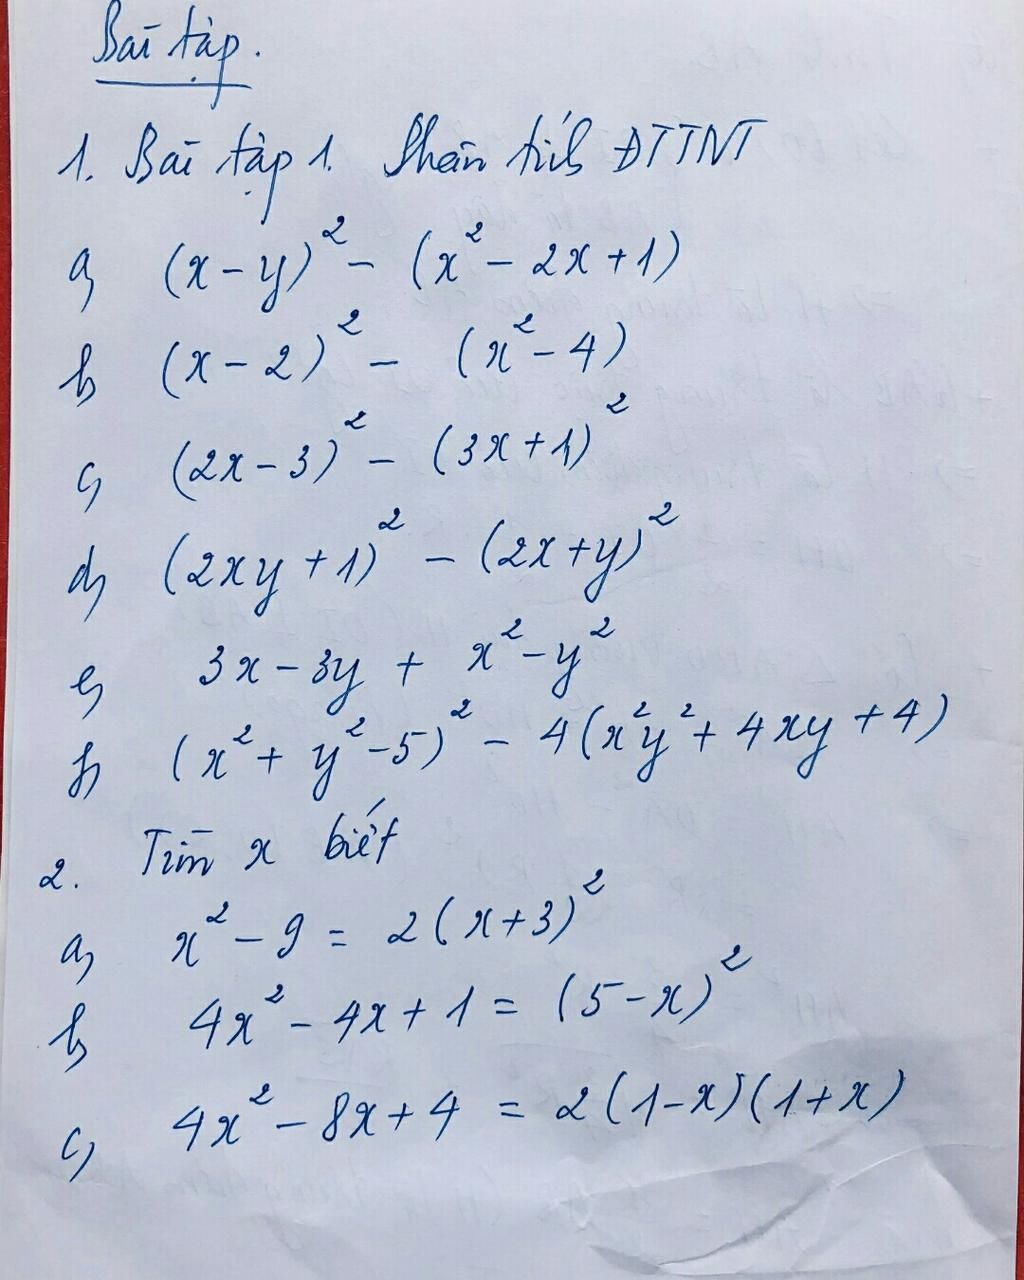 Bài tập.
1. Bài tập 1. Phân tích ĐTTNT
a, (x - y)² - (x² - 2x + 1)
b, (x - 2)² - (x² - 4)
c, (2x - 3)² - (3x + 1)²
d, (2xy + 1)² - (2x + y)²
e, 3x - 3y + x² - y²
f, (x² + y² - 5)² - 4(x²y² + 4xy + 4)
2. Tìm x biết
a, x² - 9 = 2(x + 3)²
b, 4x² - 4x + 1 = (5 - x)²
c, 4x² - 8x + 4 = 2(1 - x)(1 + x)